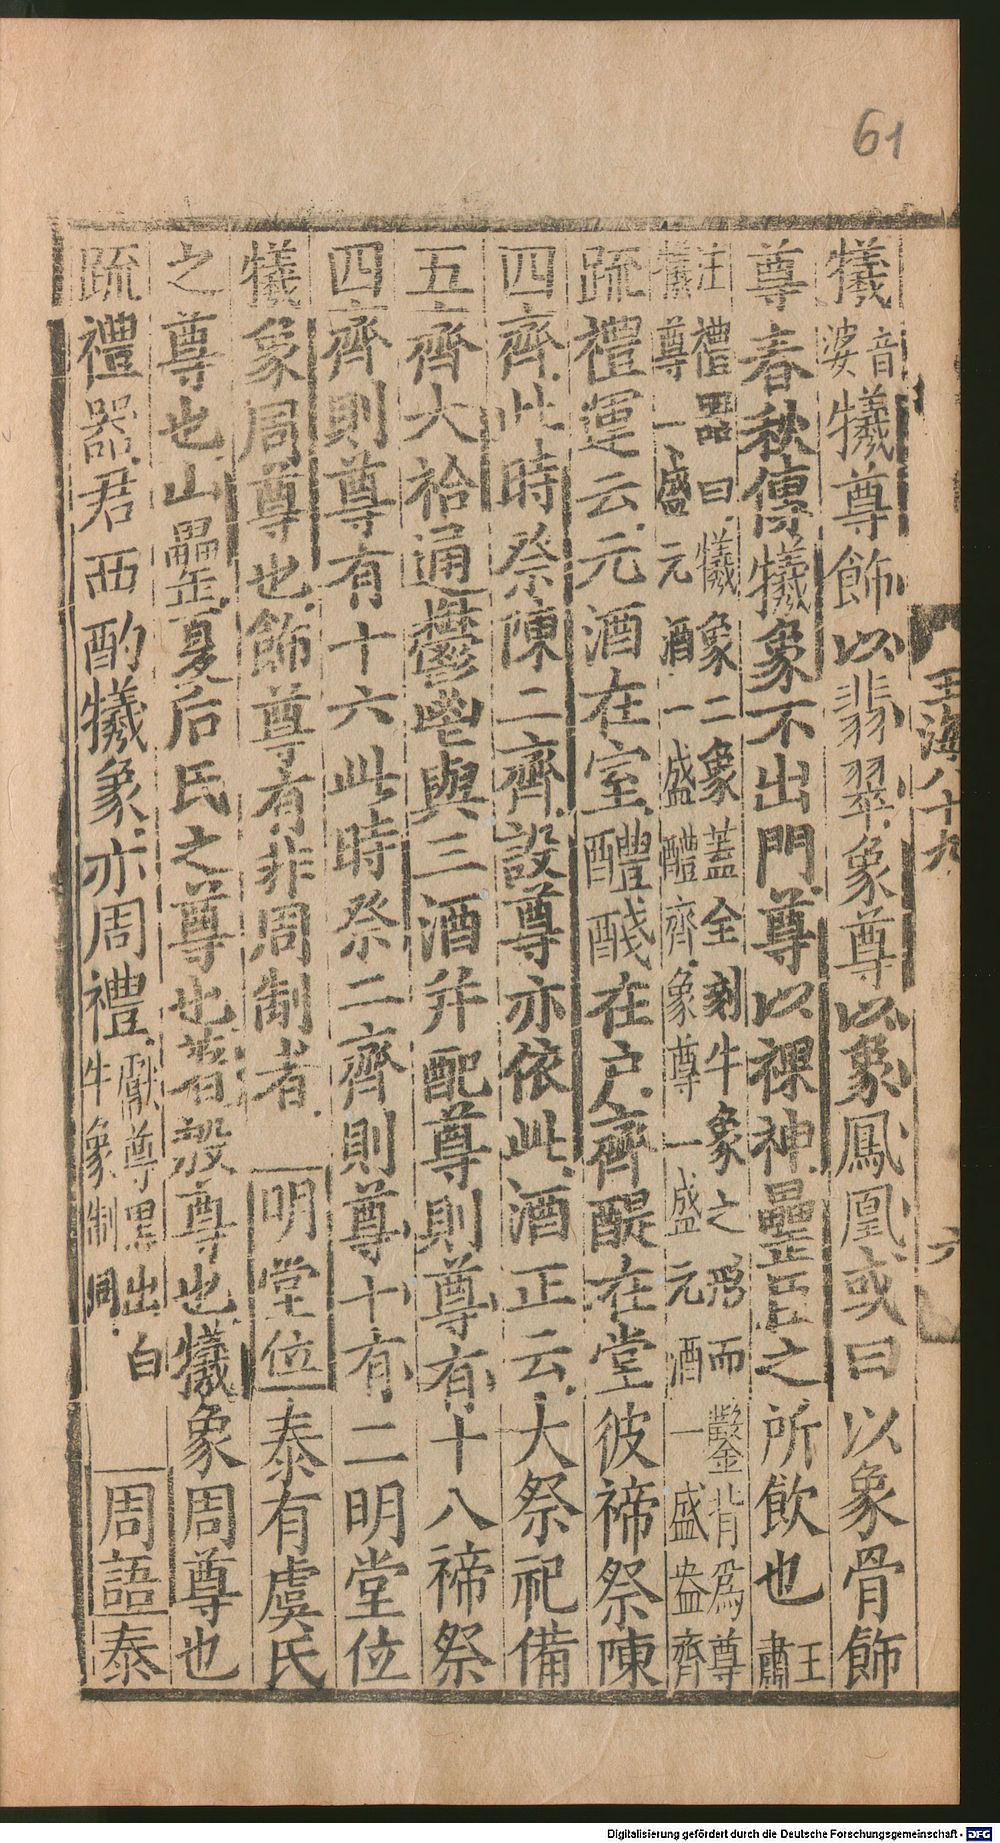 61
玉海八十九
六
犧音婆犧尊飾以翡翠象尊以象鳳凰或曰以象骨飾
尊春秋傳犧象不出門尊以祼神罍臣之所飲也王肅
注禮器曰犧象二象蓋全刻牛象之形而鑿背爲尊
犧尊一盛元酒一盛醴齊象尊一盛元酒一盛盎齊
疏禮運云元酒在室醴醆在户齊醍在堂彼禘祭陳
四齊此時祭陳二齊設尊亦依此酒正云大祭祀備
五齊大祫通鬱鬯與三酒并配尊則尊有十八禘祭
四齊則尊有十六此時祭二齊則尊十有二明堂位
犧象周尊也飾尊有非周制者明堂位泰有虞氏
之尊也山罍夏后氏之尊也著殷尊也犧象周尊也
疏禮器君西酌犧象亦周禮獻尊黑出白
牛象制同周語泰
Digitalisierung gefördert durch die Deutsche Forschungsgemeinschaft - DFG